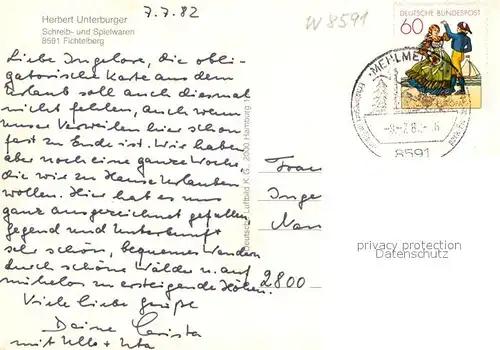 7.7.82
W 8591
Herbert Unterburger
Schreib- und Spielwaren
8591 Fichtelberg
Liebe Ingelore, die obli-
gatorische Karte aus dem
Urlaub soll auch diesmal
nicht fehlen, auch wenn
unser Verweilen hier schon
fast zu Ende ist. Wir haben
aber noch eine ganze Woche,
die wir zu Hause Urlauben
wollen. Hier hat es uns
ganz ausgezeichnet gefallen,
Gegend und Unterkunft
sehr schön, bequemes Wandern
durch schöne Wälder u. auf
mühelos zu ersteigende Höhen.
Viele liebe Grüße
Deine Christa
mit Ullo + Uta
Deutsche Luftbild K. G., 2000 Hamburg 1
DEUTSCHE BUNDESPOST
60
MEHLMEISEL
8591
Frau
Inge
Nan
2800
privacy protection
Datenschutz